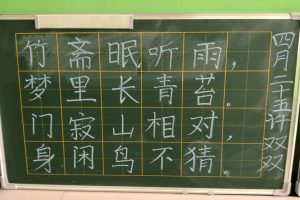 竹斋眠听雨，
梦里长青苔。
门寂山相对，
身闲鸟不猜。
四月二十五 许双双